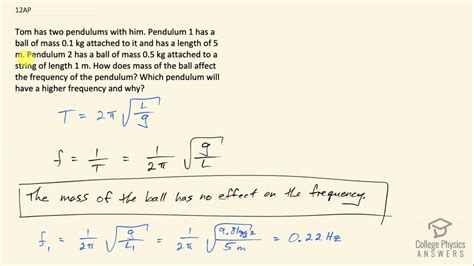 12AP
Tom has two pendulums with him. Pendulum 1 has a
ball of mass 0.1 kg attached to it and has a length of 5
m. Pendulum 2 has a ball of mass 0.5 kg attached to a
string of length 1 m. How does mass of the ball affect
the frequency of the pendulum? Which pendulum will
have a higher frequency and why?
T = 2π √(L/g)
f = 1/T = 1/2π √(g/L)
The mass of the ball has no effect on the frequency.
f₁ = 1/2π √(g/L₁) = 1/2π √(9.8 m/s²/5 m) = 0.22 Hz
College Physics
ANSWERS